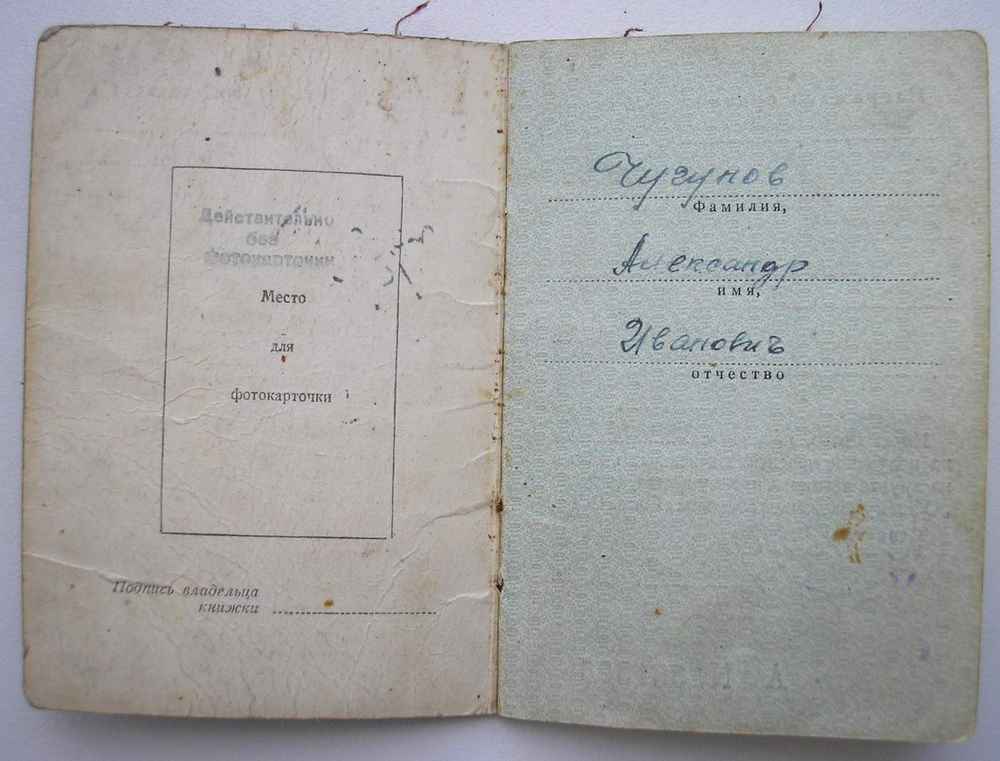 Действительно
без
фотокарточки
Место
для
фотокарточки
Подпись владельца
книжки
Чугунов
Фамилия,
Александр
имя,
Иванович
отчество